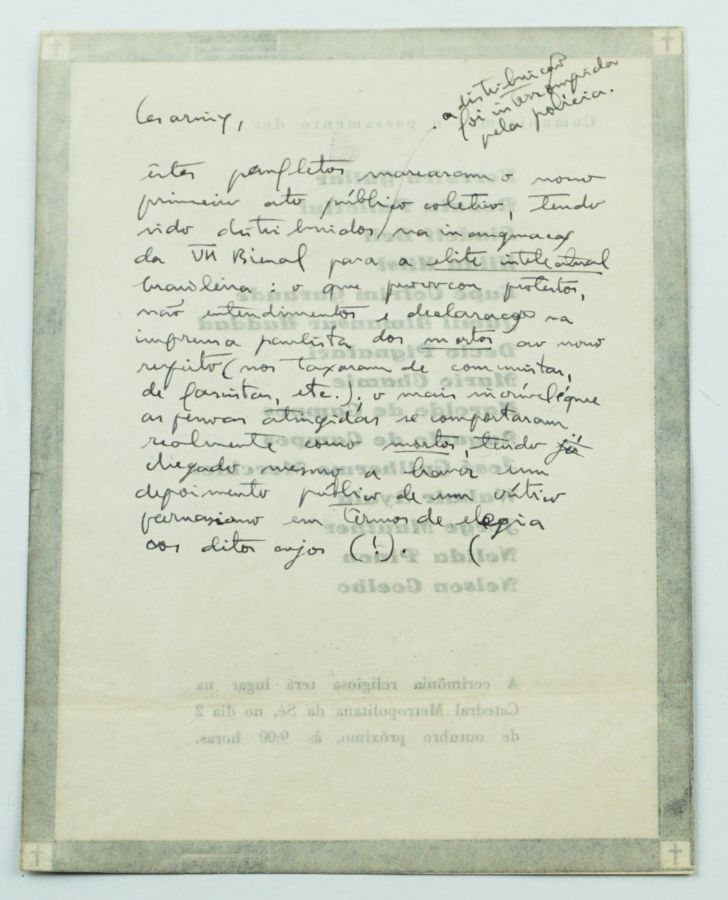 a distribuição
foi interrompida
pela policia.
Cesariny,
êstes panfletos marcaram o nosso
primeiro ato público coletivo, tendo
sido distribuidos na inauguração
da VII Bienal para a elite intelectual
brasileira: o que provocou protestos,
não entendimentos e declarações na
imprensa paulista dos mortos ao nosso
respeito (nos taxaram de comunistas,
de fascistas, etc.); o mais incrível é que
as pessoas atingidas se comportaram
realmente como mortos, tendo já
chegado mesmo a haver um
depoimento público de um crítico
parnasiano em termos de elegia
aos ditos cujos (!). (
Comunica passamento de:
Ferreira Gullar
Décio Pignatari
Mario Chamie
Haroldo de Campos
Augusto de Campos
José Guilherme
Jorge Mautner
Nelida Piñon
Nelson Coelho
A cerimônia religiosa terá lugar na
Catedral Metropolitana da Sé, no dia 2
de outubro próximo, às 9:00 horas.